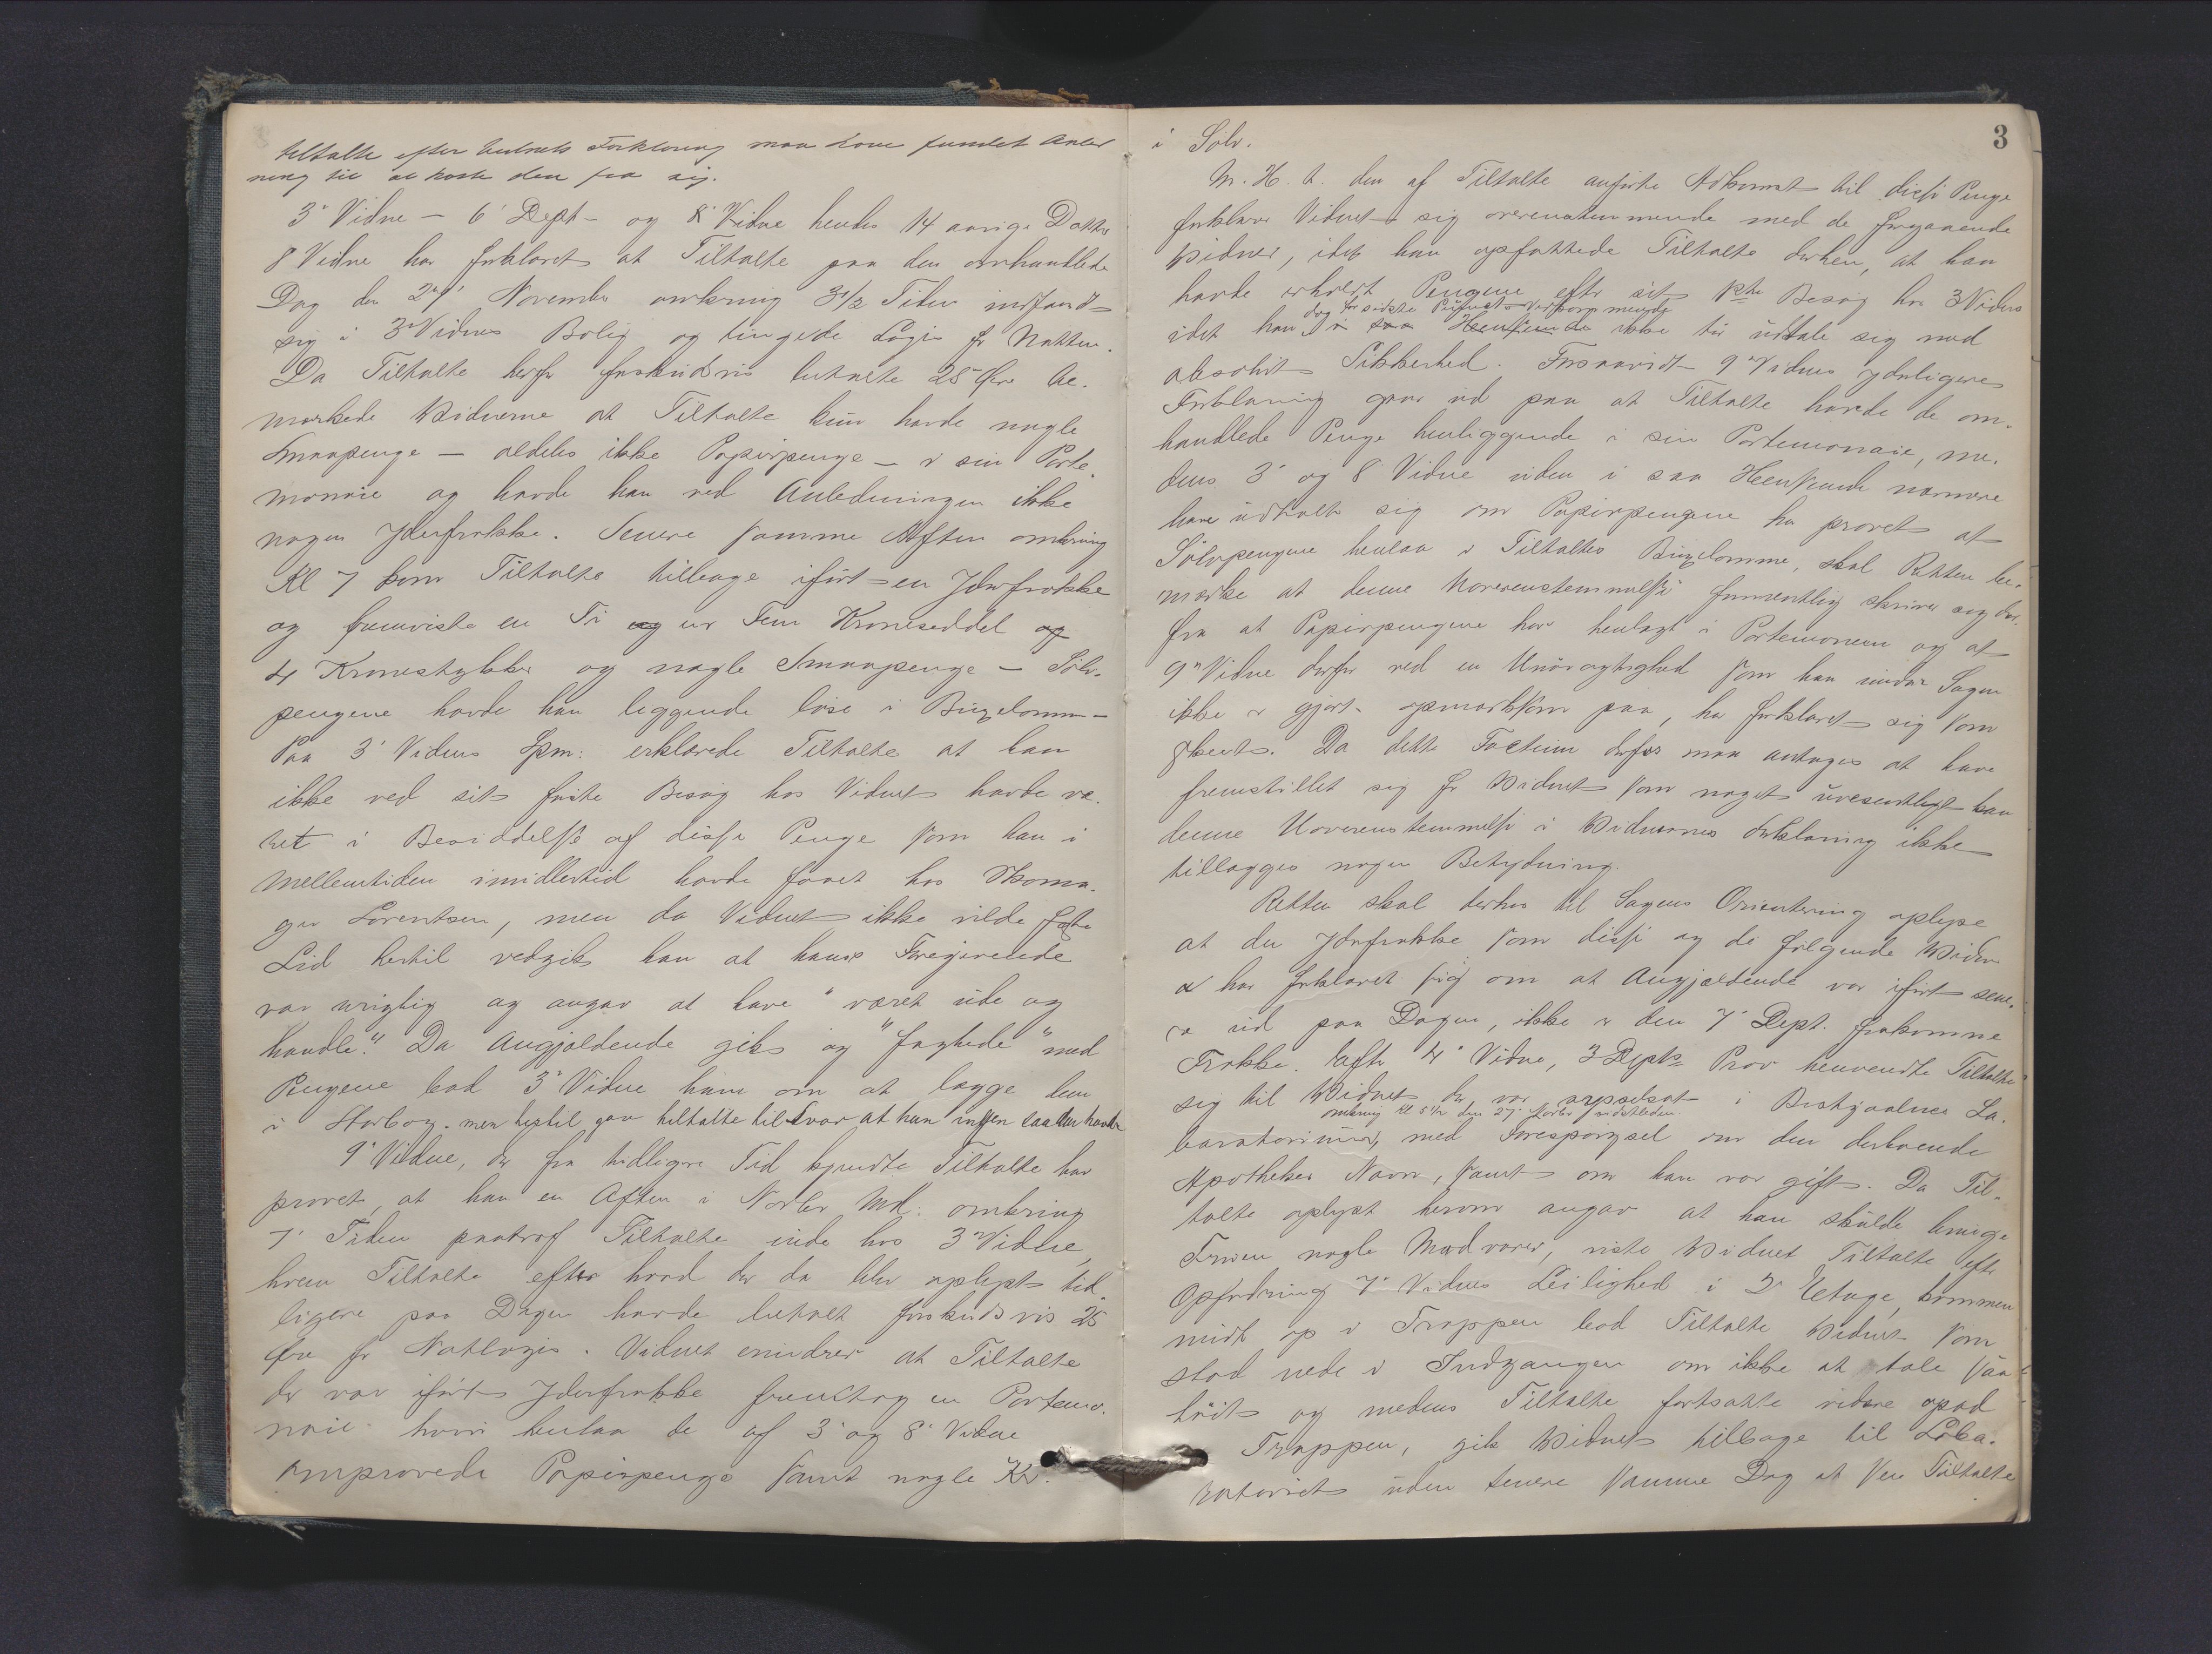 tiltalte efter Vidnets Forklaring maa have fundet Anled
ning til at kaste den fra sig.
3' Vidne – 6' Dept – og 8' Vidne hendes 14 aarige Datter
8 Vidne har forklaret at Tiltalte paa den omhandlede
Dag den 27' November omkring 3½ Tiden indfandt
sig i 3' Vidnes Bolig og tingede Logis for Natten.
Da Tiltalte herfor forskudsvis betalte 25 Øre be-
mærkede Vidnerne at Tiltalte kun havde nogle
Smaapenge – aldeles ikke Papirpenge – i sin Porte-
monnaie og havde han ved Anledningen ikke
nogen Yderfrakke. Senere samme Aften omkring
Kl 7 kom Tiltalte tilbage iført en Yderfrakke
og fremviste en Ti og en Fem Kroneseddel og
4 Kronestykker og nogle Smaapenge – Sølv-
pengene havde han liggende løse i Buxelommen –
Paa 3' Vidnes Spm: erklærede Tiltalte at han
ikke ved sit første Besøg hos Vidnet havde væ-
ret i Besiddelse af disse Penge som han i
Mellemtiden imidlertid havde faaet hos Skoma-
ger Lorentsen, men da Vidnet ikke vilde fæste
Lid hertil vedgik han at hans Foregivende
var urigtig og angav at have "været ude og
handle". Da Angjældende gik og "fægtede" med
Pengene bad 3' Vidne ham om at lægge dem
i Storbog. men hertil gav tiltalte tilsvar at han ingen saadan havde
9' Vidne, der fra tidligere Tid kjendte Tiltalte har
provet, at han en Aften i Novbr Md. omkring
7' Tiden paatraf Tiltalte inde hos 3' Vidne,
hvem Tiltalte efter hvad der da blev oplyst tid-
ligere paa Dagen havde betalt forskudsvis 25
Øre for Natlogis. Vidnet erindrer at Tiltalte
der var iført Yderfrakke fremtog en Portemo-
naie hvori henlaa de af 3' og 8' Vidne
omprovede Papirpenge samt nogle Kr.
3
i Sølv.
M. H. t. den af Tiltalte anførte Adkomst til disse Penge
forklarer Vidnet sig overensstemmende med de foregaaende
Vidner, idet han opfattede Tiltalte derhen, at han
havde erholdt Pengene efter sit 1ste Besøg hos 3 Vidne
dog for sidste Punkts Vedkommende
idet han i saa Henseende ikke tør udtale sig med
absolut Sikkerhed. Forsaavidt 9' Vidnes yderligere
Forklaring gaar ud paa at Tiltalte havde de om-
handlede Penge henliggende i sin Portemonaie, me-
dens 3' og 8' Vidne uden i saa Henseende nærmere
have udtalt sig om Papirpengene har provet at
Sølvpengene henlaa i Tiltaltes Buxelomme, skal Retten be-
mærke at denne Uoverensstemmelse formentlig skriver sig der-
fra at Papirpengene har henlagt i Portemonaien og at
9' Vidne derfor ved en Unøiagtighed som han under Sagen
ikke er gjort opmærksom paa, har forklaret sig som
skeet. Da dette Factum derfor maa antages at have
fremstillet sig for Vidnet som noget uvæsentligt kan
denne Uoverensstemmelse i Vidnernes Forklaring ikke
tillægges nogen Betydning.
Retten skal derhos til Sagens Orientering oplyse
at den Yderfrakke som disse og de følgende Vidner
har forklaret sig om at Angjældende var iført sene-
re ud paa Dagen, ikke er den 7' Dept. frakomne
Frakke. Efter 4' Vidne, 3 Depts Prov henvendte Tiltalte
sig til Vidnet der var sysselsat i Bestjaalnes La-
omkring Kl 5½ den 27' Novbr sidstleden
boratorium, med Forespørgsel om den derboende
Apotheker Navn, samt om han var gift. Da Til-
talte oplyst herom angav at han skulde bringe
Fruen nogle Madvarer, viste Vidnet Tiltalte efter
Opfordring 7' Vidnes Leilighed i 2' Etage, kommen
midt op i Trappen bad Tiltalte Vidnet som
stod nede i Indgangen om ikke at tale saa
høit og medens Tiltalte fortsatte videre opad
Trappen, gik Vidnet tilbage til Labo-
ratoriet uden senere samme Dag at see Tiltalte